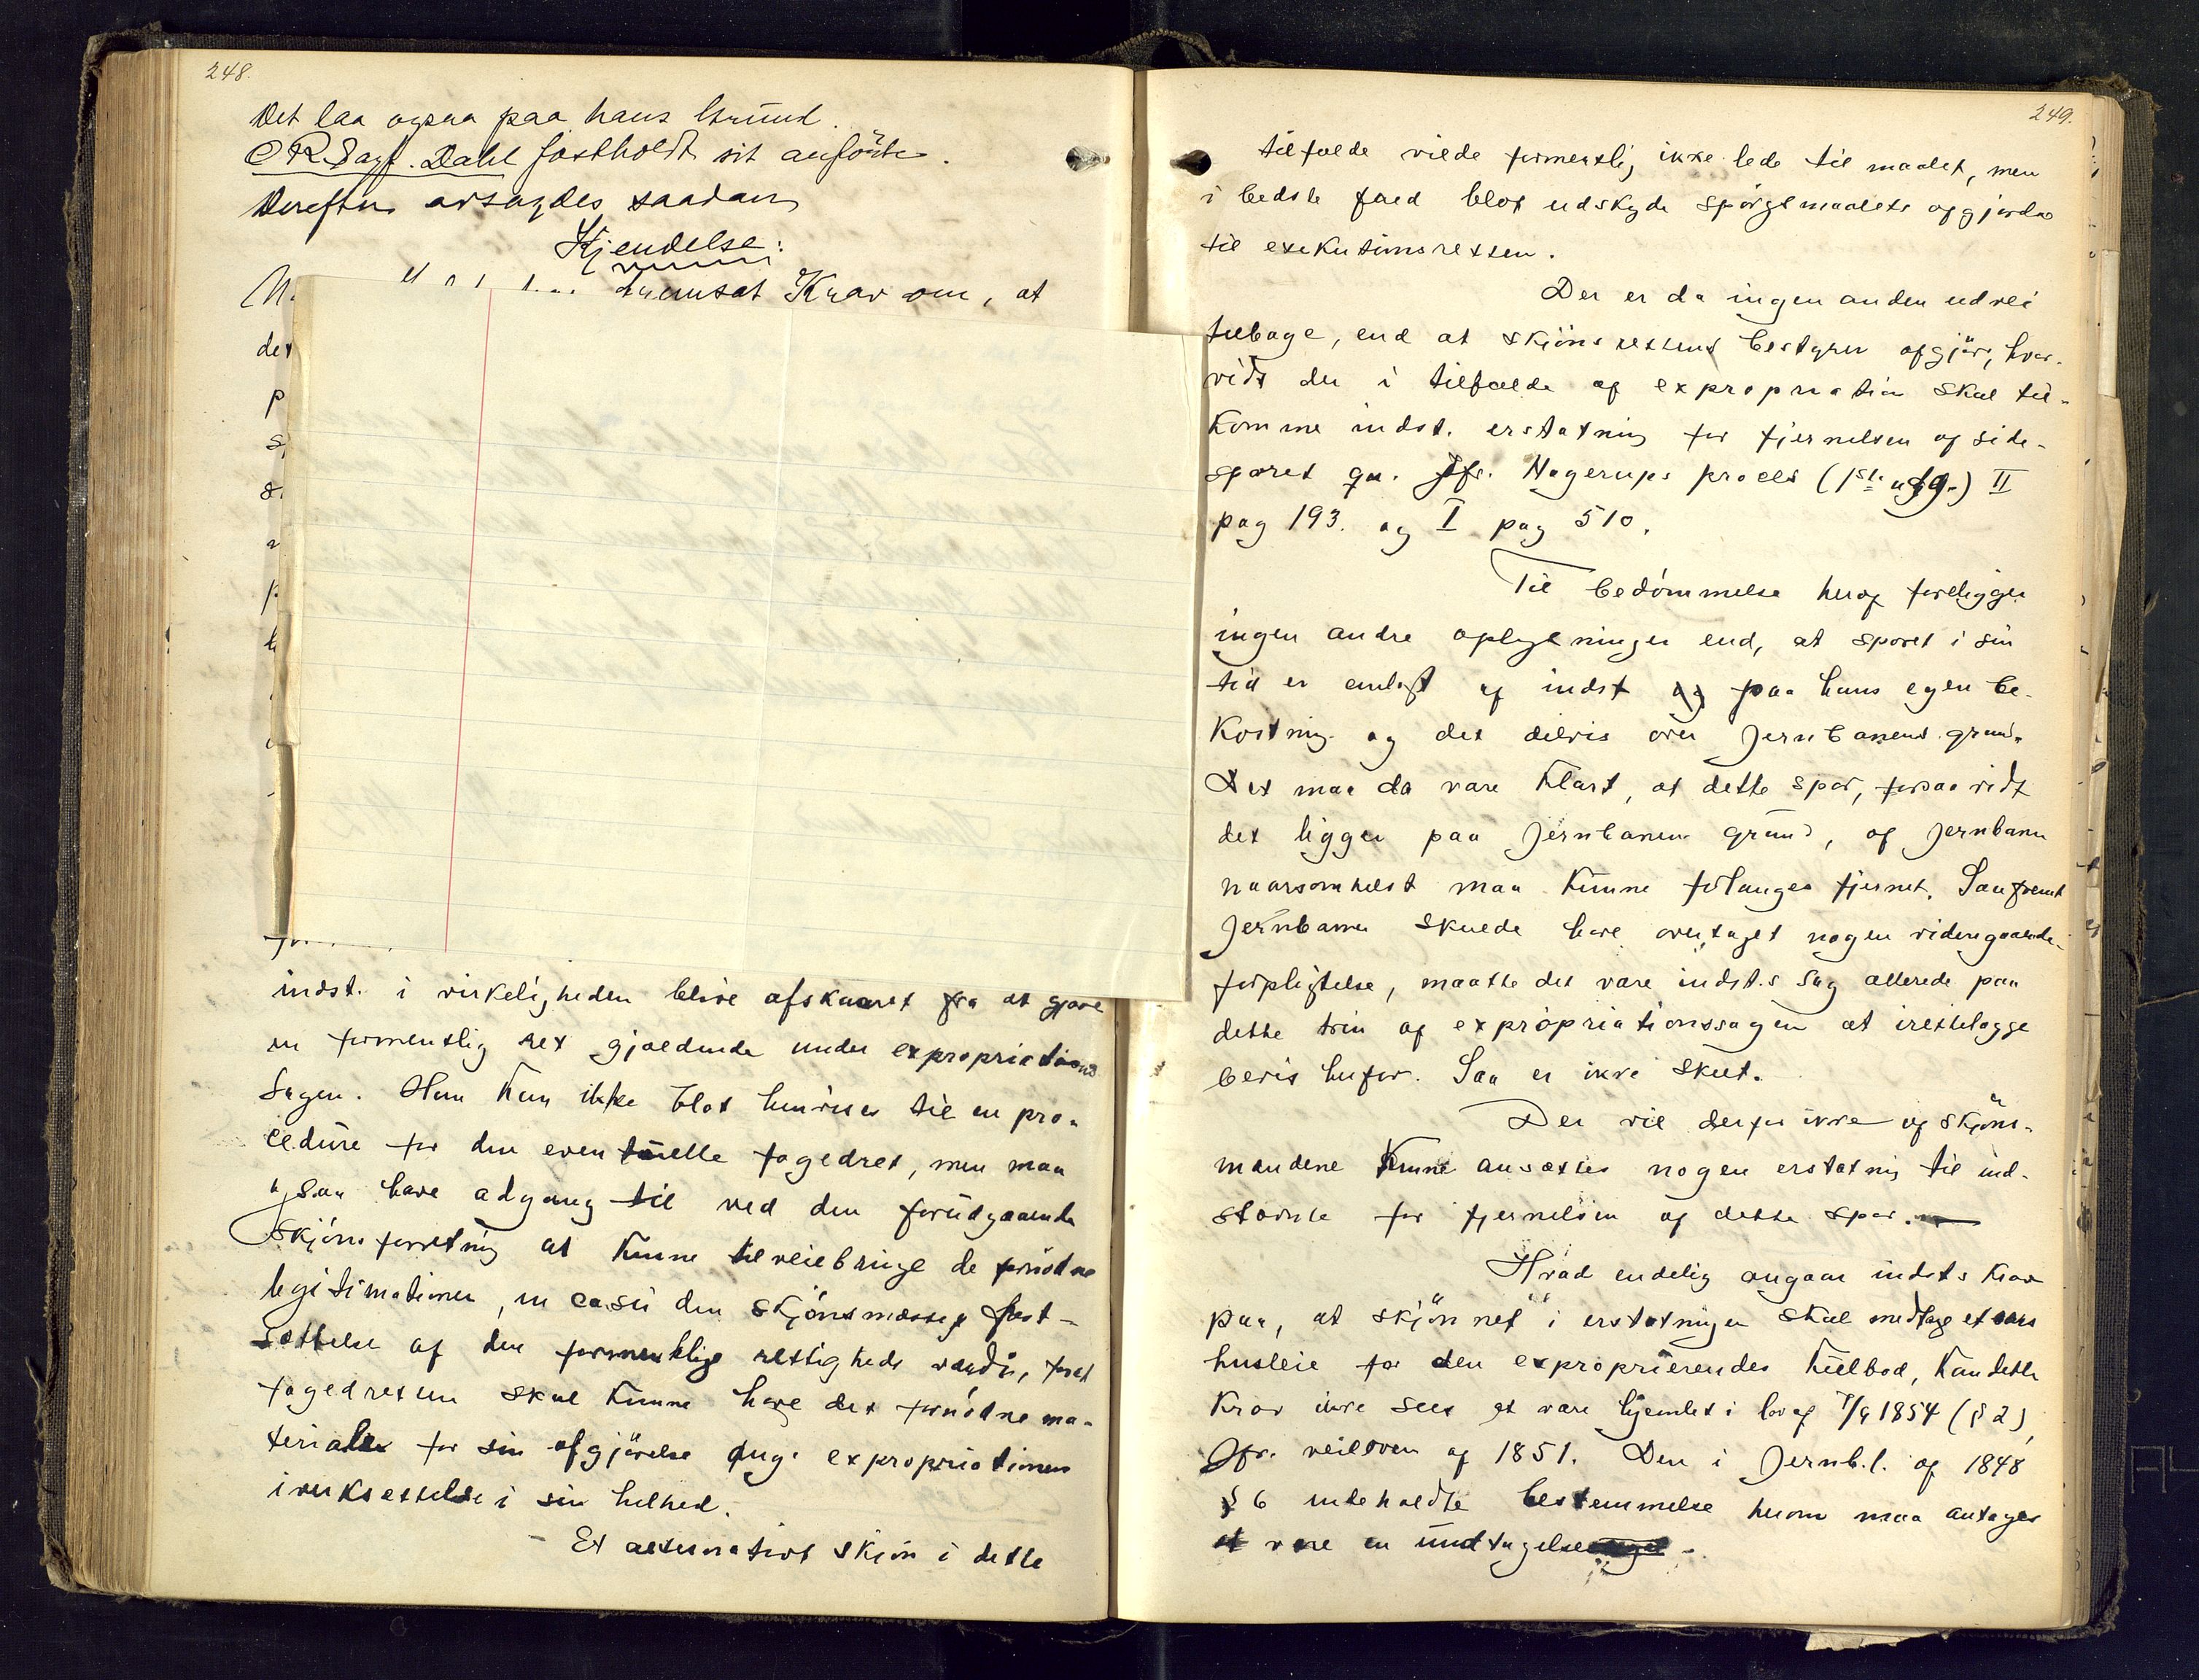 248.
Det laa ogsaa paa hans Grund.
O.R.Sagf. Dahl fastholdt sit anførte.
Derefter avsagdes saadan
Kjendelse:
fremsat Krav om, at
det
p
s
indst. i virkeligheden blive afskaaret fra at gjøre
en formentlig ret gjældende under expropriations
sagen. Han kan ikke blot henvises til en pro-
cedure for den eventuelle fogedret, men maa
ogsaa have adgang til ved den forudgaaende
skjønsforretning at kunne tilveiebringe de fornødne
legitimationer, in casu den skjønsmæssige fast-
sættelse af den formentlige rettigheds værdi, forat
fogedretten skal kunne have det fornødne ma-
teriale for sin afgjørelse ang. expropriationens
iverksettelse i sin helhed.
- Et alternativt skjøn i dette
249.
tilfælde vilde formentlig ikke lede til maalet, men
i bedste fald blot udskyde spørgsmaalets afgjørelse
til exekutionsretten.
Der er da ingen anden udvei
tilbage, end at skjønsrettens bestyrer afgjør, hvor-
vidt der i tilfælde af expropriation skal til-
komme indst. erstatning for fjernelsen af side-
sporet qu. Jfr. Hagerups proces (1ste udg.) II
pag 193. og I pag 510.
Til bedømmelse heraf foreligger
ingen andre oplysninger end, at sporet i sin
tid er anlagt af indst og paa hans egen be-
kostning og det delvis over Jernbanens grund.
Det maa da være klart, at dette spor, forsaavidt
det ligger paa Jernbanens grund, af Jernbanen
naarsomhelst maa kunne forlanges fjernet. Saafremt
Jernbanen skulde have overtaget nogen videregaaende
forpligtelse, maatte det være indst.s sag allerede paa
dette trin af expropriationssagen at irettelægge
bevis herfor. Saa er ikke skeet.
Der vil derfor ikke af skjøns-
mændene kunne ansættes nogen erstatning til ind-
stævnte for fjernelsen af dette spor.
Hvad endelig angaar indsts krav
paa, at skjønnet i erstatningen skal medtage et aars
husleie for den exproprierendes kulbod, kan dette
krav ikke sees at være hjemlet i lov af 7/9 1854 (§ 2),
Jfr. veiloven af 1851. Den i Jernb.l. af 1848
§ 6 indeholdte bestemmelse herom maa antages
at være en undtagelse